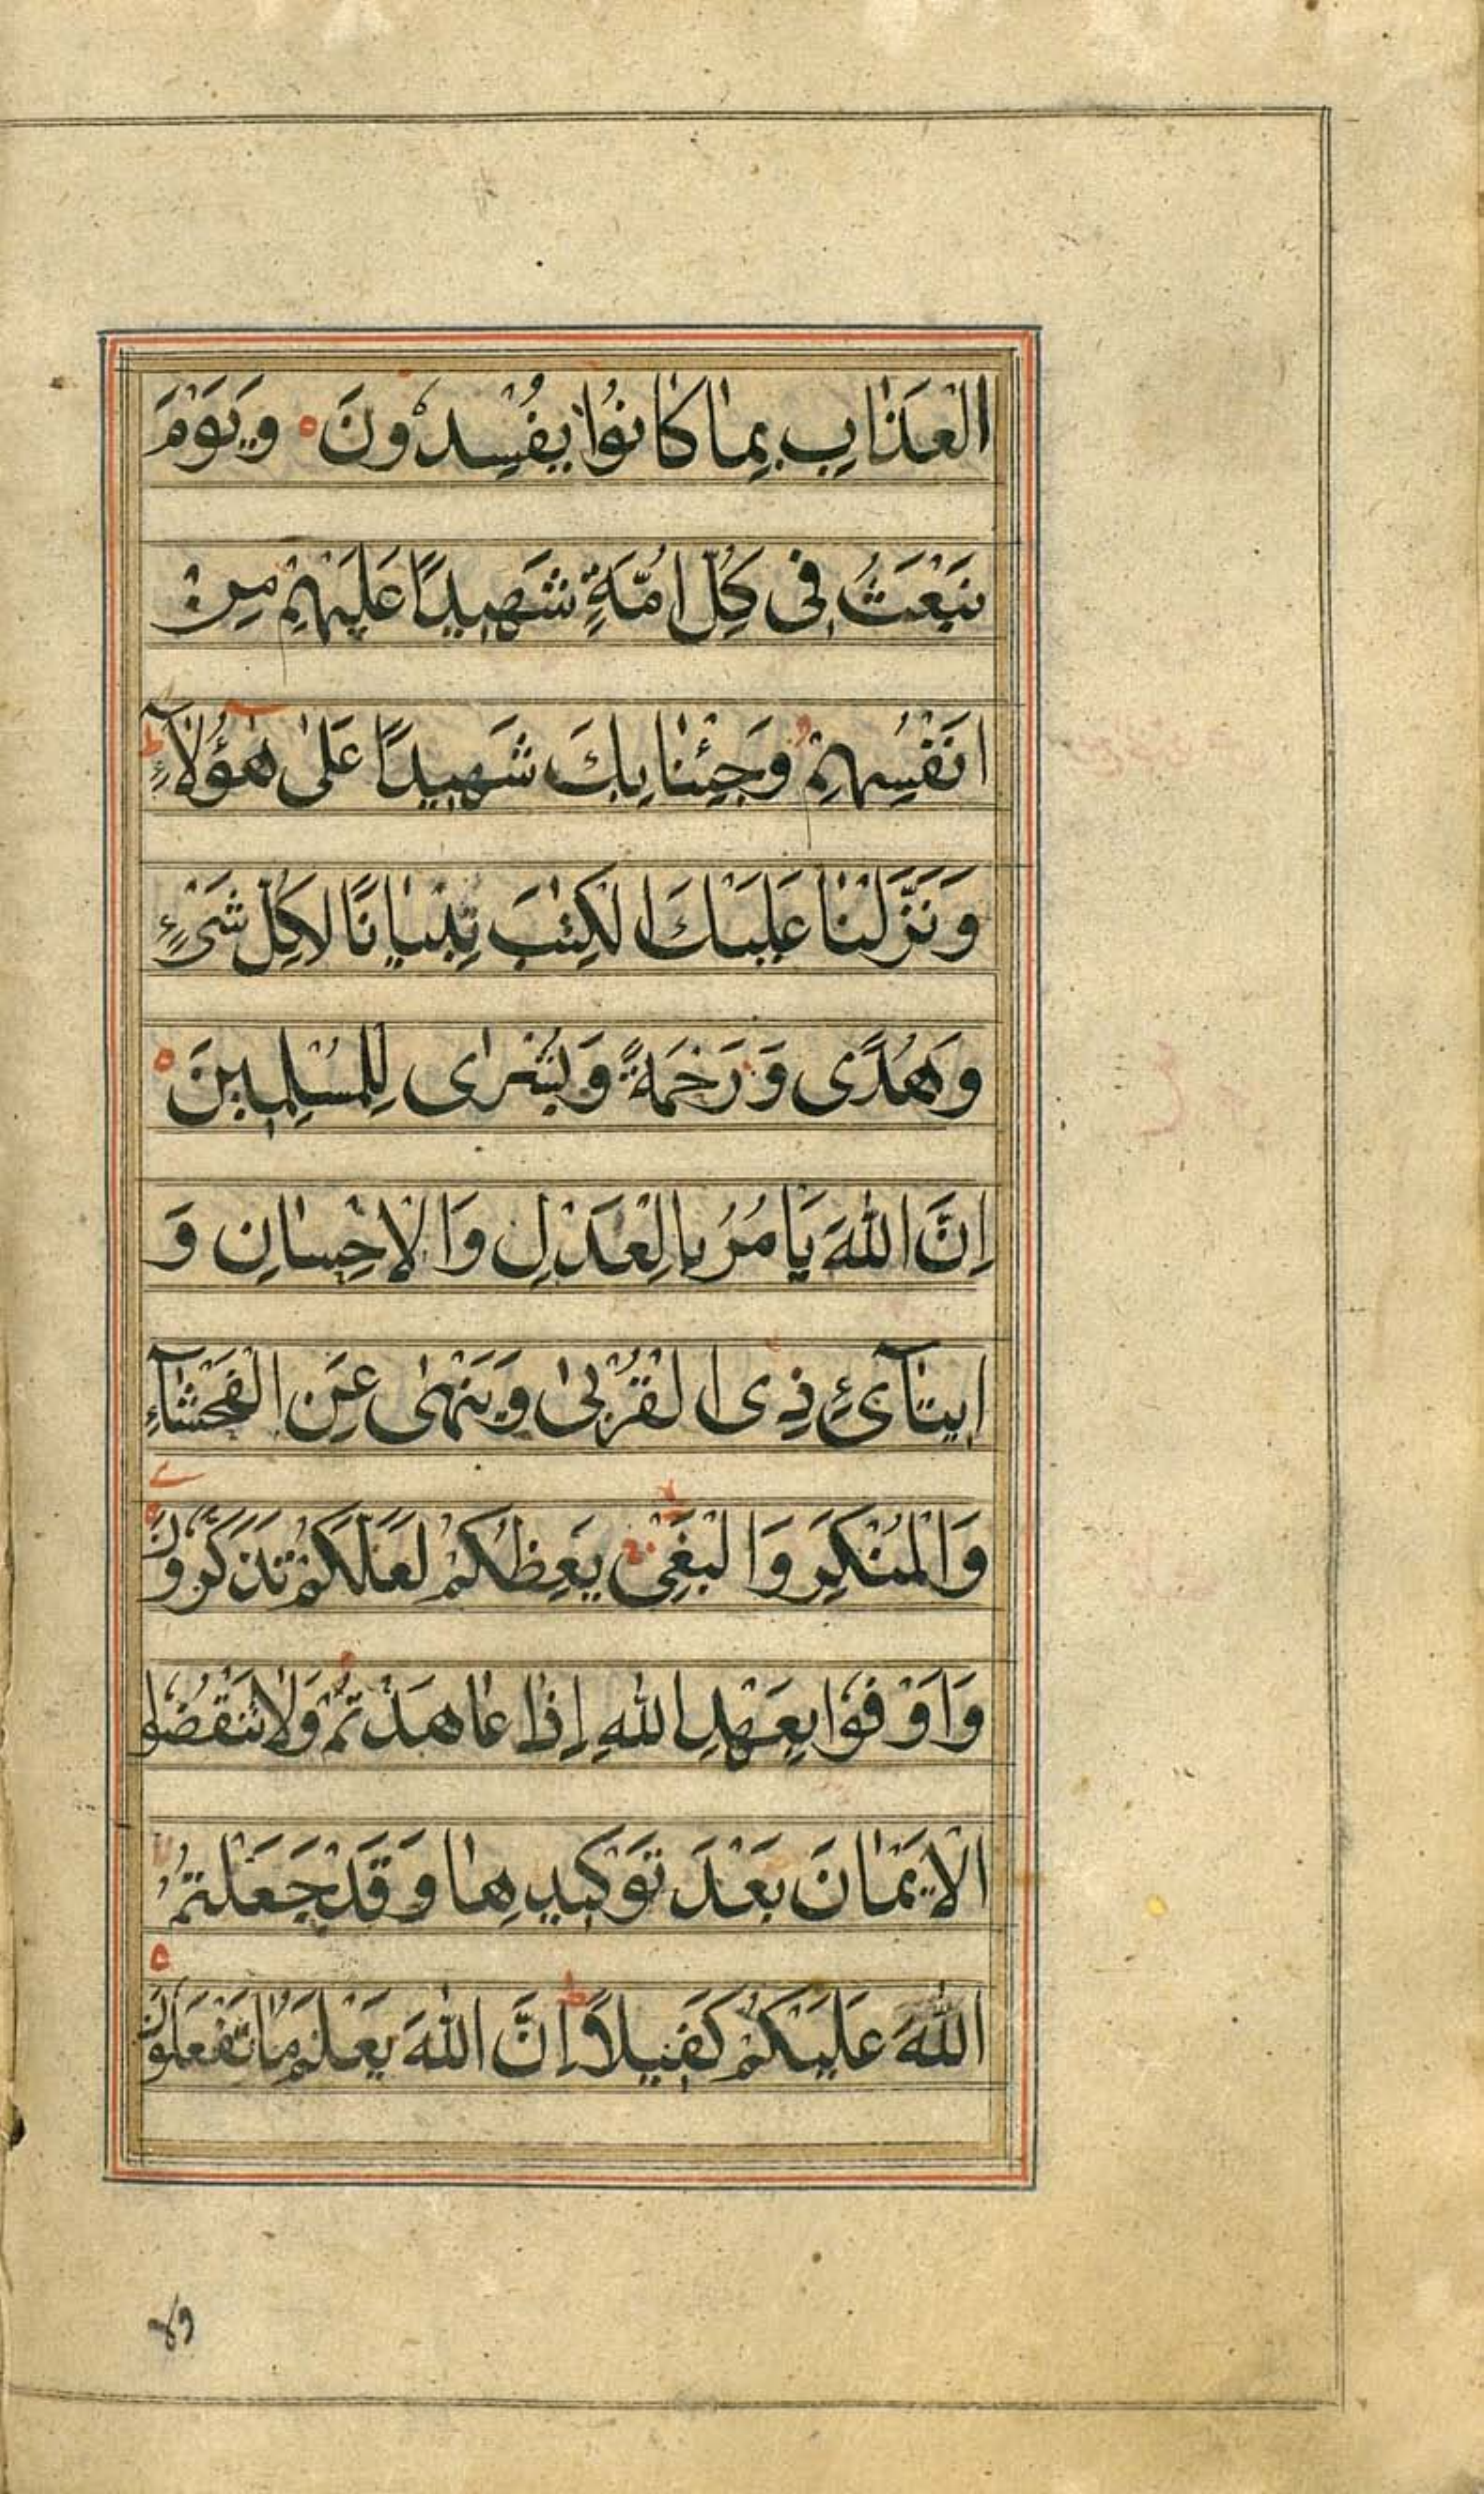 الْعَذَابِ بِمَا كَانُوا يُفْسِدُونَ وَيَوْمَ
نَبْعَثُ فِى كُلِّ اُمَّةٍ شَهِيدًا عَلَيْهِمْ مِنْ
اَنْفُسِهِمْ وَجِئْنَا بِكَ شَهِيدًا عَلٰى هٰؤُلَآءِ
وَنَزَّلْنَا عَلَيْكَ الْكِتٰبَ تِبْيَانًا لِكُلِّ شَىْءٍ
وَهُدًى وَرَحْمَةً وَبُشْرٰى لِلْمُسْلِمِينَ
اِنَّ اللّٰهَ يَامُرُ بِالْعَدْلِ وَالْاِحْسَانِ وَ
اِيتَآئِ ذِى الْقُرْبٰى وَيَنْهٰى عَنِ الْفَحْشَآءِ
وَالْمُنْكَرِ وَالْبَغْىِ يَعِظُكُمْ لَعَلَّكُمْ تَذَكَّرُونَ
وَاَوْفُوا بِعَهْدِ اللّٰهِ اِذَا عَاهَدْتُمْ وَلَا تَنْقُضُوا
الْاَيْمَانَ بَعْدَ تَوْكِيدِهَا وَقَدْ جَعَلْتُمُ
اللّٰهَ عَلَيْكُمْ كَفِيلًا اِنَّ اللّٰهَ يَعْلَمُ مَا تَفْعَلُونَ